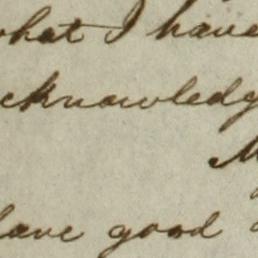 what I have
cknowledg
M
have good